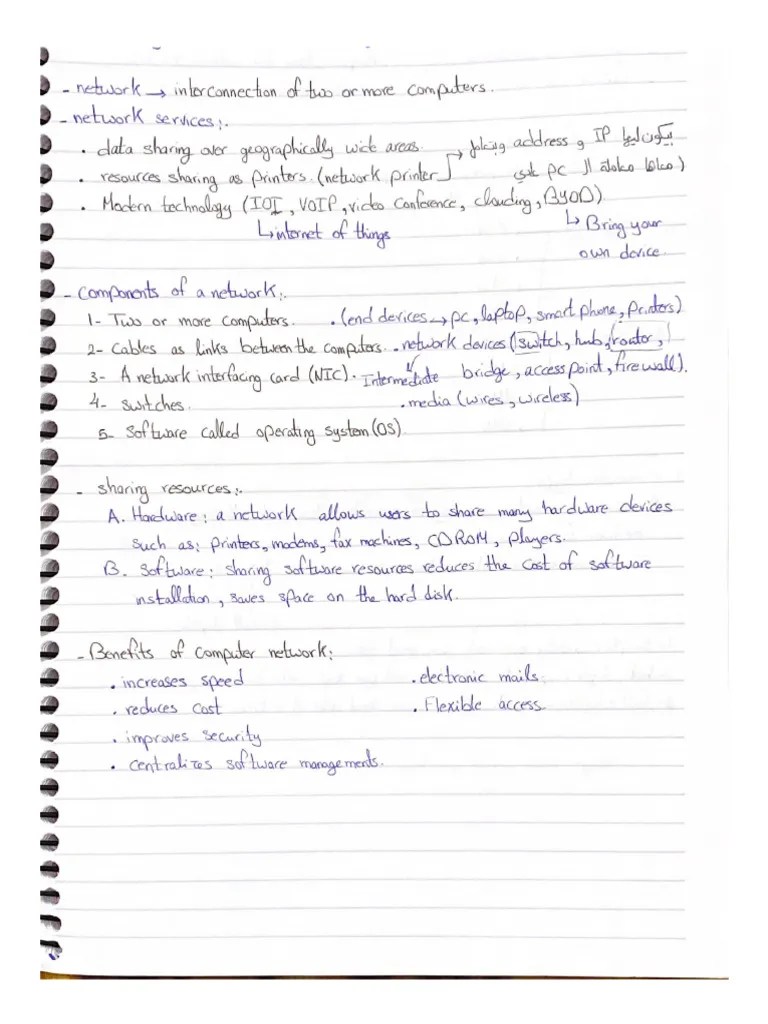 - network → interconnection of two or more computers.
- network services:.
. data sharing over geographically wide areas.
. resources sharing as printers. (network printer → بيكون ليها IP و address وبتعامل
معاها معاملة ال PC عادي)
. Modern technology (IOI, VOIP, video conference, clouding, BYOD)
↳ internet of things
↳ Bring your
own device.
- Components of a network:.
1- Two or more computers. . (end devices → pc, laptop, smart phone, printers)
2- Cables as links between the computers. . network devices (switch, hub, router,
3- A network interfacing card (NIC). Intermediate bridge, access point, firewall).
4- switches. . media (wires, wireless)
5- Software called operating system (OS).
- sharing resources:.
A. Hardware: a network allows users to share many hardware devices
such as: printers, modems, fax machines, CD ROM, players.
B. Software: sharing software resources reduces the cost of software
installation, saves space on the hard disk.
- Benefits of computer network:
. increases speed . electronic mails.
. reduces cost . Flexible access.
. improves security
. centralizes software managements.